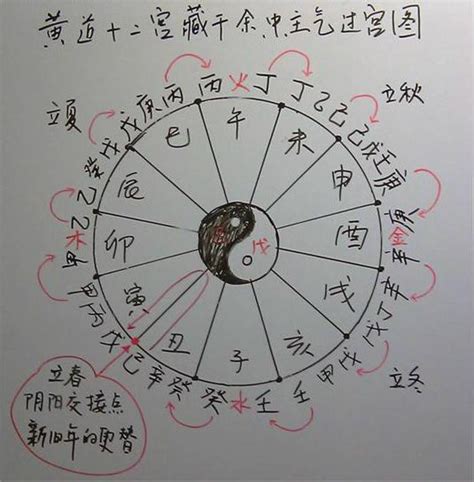 黄道十二宫藏干余中主气过宫图
立夏
戊庚丙
丙火丁
丁乙己
立秋
己戊壬庚
金辛
辛丁戊
立冬
戊甲壬
壬水癸
癸辛己
戊丙甲
甲木乙
乙癸戊
巳
午
未
申
酉
戌
亥
子
丑
寅
卯
辰
戊
立春
阴阳交接点
新旧年的更替